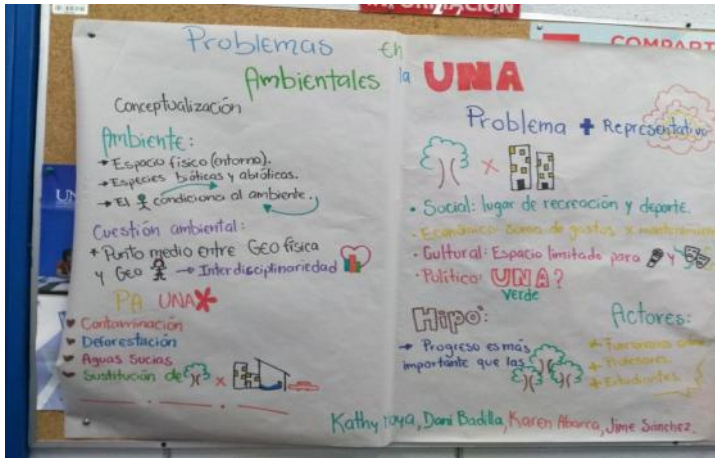 INFORMACIÓN
COMPART
UN
Problemas en
Ambientales la UNA
Conceptualización
Ambiente:
→ Espacio físico (entorno).
→ Especies bióticas y abióticas.
→ El condiciona al ambiente.
Cuestión ambiental:
* Punto medio entre Geo física
y Geo → Interdisciplinariedad
PA UNA*
Contaminación
Deforestación
Aguas Sucias
Sustitución de x
Problema + Representativo
x
• Social: lugar de recreación y deporte.
• Económico: Suma de gastos x mantenimien
• Cultural: Espacio limitado para y
• Político: UNA?
Verde
Hipo:
→ Progreso es más
importante que las
Actores:
+ Funcionarios
+ Profesores
+ Estudiantes
Kathy Loya, Dani Badilla, Karen Abarca, Jime Sánchez.